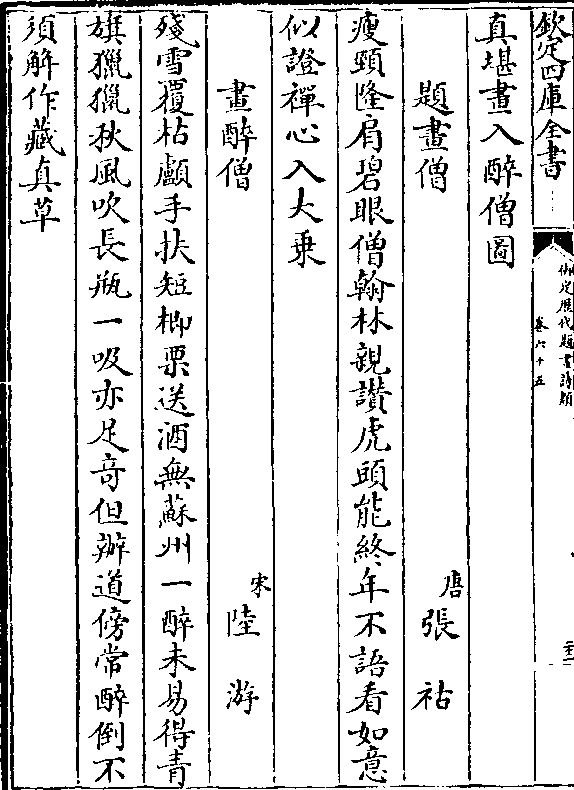 欽定四庫全書
御定歷代題畫詩類
卷六十五
真堪畫入醉僧圖
題畫僧
唐張祜
瘦頸隆肩碧眼僧翰林親讃虎頭能終年不語看如意
似證禪心入大乗
畫醉僧
宋陸游
殘雪覆枯顱手扶短楖栗送酒無蘇州一醉未易得青
旗獵獵秋風吹長瓶一吸亦足竒但辦道傍常醉倒不
須解作藏真草